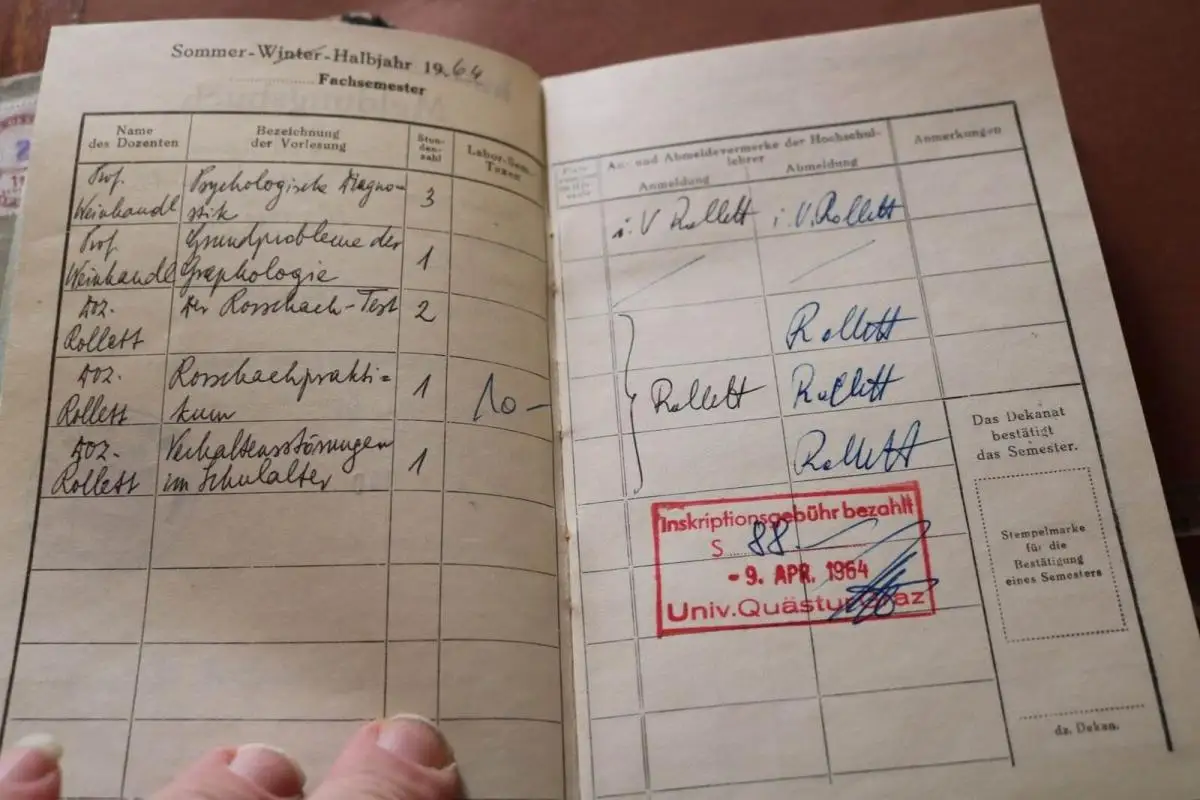 Sommer-Winter-Halbjahr 1964
Fachsemester
Name
des Dozenten
Bezeichnung
der Vorlesung
Stun-
den-
zahl
Labor-Sem.
Taxen
Prof.
Weinhandl
Psychologische Diagno-
stik
3
Prof
Weinhandl
Grundprobleme der
Graphologie
1
Doz.
Rollett
Der Rorschach-Test
2
Doz.
Rollett
Rorschachprakti=
kum
1
10-
Doz.
Rollett
Verhaltensstörungen
im Schulalter
1
An- und Abmeldevermerke der Hochschul-
lehrer
Anmeldung
Abmeldung
Anmerkungen
i. V Rollett
i. V. Rollett
Rollett
Rollett
Rollett
Rollett
Inskriptionsgebühr bezahlt
S 88
- 9. APR. 1964
Univ.Quästur Graz
Das Dekanat
bestätigt
das Semester.
Stempelmarke
für die
Bestätigung
eines Semesters
dz. Dekan.